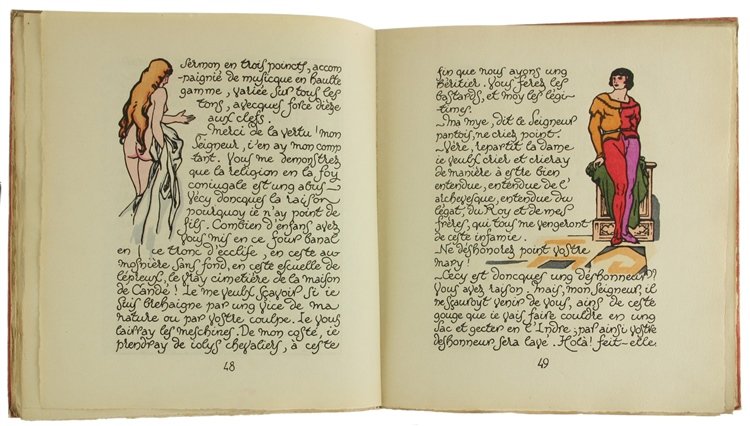 Sermon en trois poincts, accom
-paignié de musicque en haulte
gamme, variée sur tous les
tons, avecques force dièze
aux clefs.
Merci de la vertu ! mon
Seigneur, i'en ay mon comp
tant. Vous me demonstrez
que la religion en la foy
coniugale est ung abus.
Vécy doncques la raison
pourquoy ie n'ay point de
fils. Combien d'enfans avez
vous mis en ce four banal
en ce tronc d'ecclise, en ceste au
mosnière sans fond, en ceste escuelle de
lépreux, le vray cimetière de la maison
de Candé ! Ie me veulx sçavoir si ie
suis brehaigne par ung vice de ma
nature ou par vostre coulpe. Ie vous
lairray les meschines. De mon costé, ie
prendray de iolys chevaliers, à ceste
48
fin que nous ayons ung
héritier. Vous ferez les
bastards, et moy les légi-
times.
-Ma mye, dit le Seigneur
pantois, ne criez point.
-Vère, repartit la dame
ie veulx crier et crieray
de manière à estre bien
entendue, entendue de l'
archevesque, entendue du
légat, du Roy et de mes
frères, qui tous me vengeront
de ceste infamie.
-Ne deshonorez point vostre
mary !
-Cecy est doncques ung deshonneur ?
Vous avez raison. Mais, mon Seigneur, il
ne sauroyt venir de vous, ains de ceste
gouge que ie vais faire couldre en ung
sac et gecter en l'Indre ; par ainsi vostre
deshonneur sera lavé. Holà ! feit-elle.
49